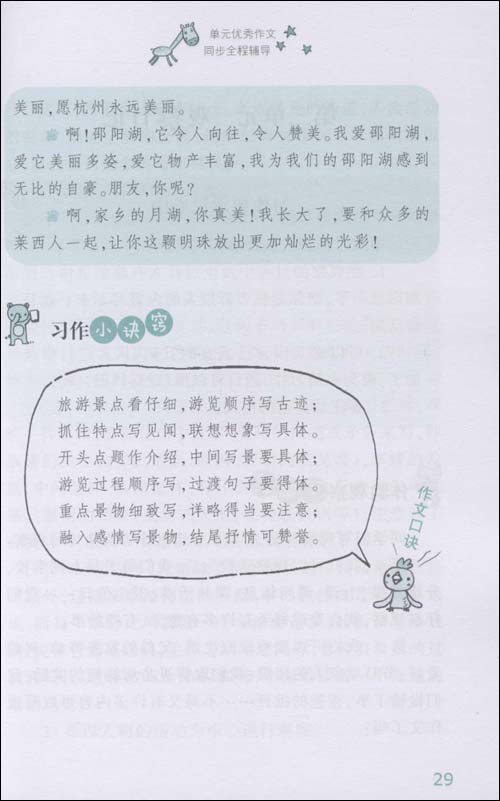 单元优秀作文
同步全程辅导
美丽,愿杭州永远美丽。
啊!邵阳湖,它令人向往,令人赞美。我爱邵阳湖,
爱它美丽多姿,爱它物产丰富,我为我们的邵阳湖感到
无比的自豪。朋友,你呢?
啊,家乡的月湖,你真美!我长大了,要和众多的
莱西人一起,让你这颗明珠放出更加灿烂的光彩!
习作小诀窍
旅游景点看仔细,游览顺序写古迹;
抓住特点写见闻,联想想象写具体。
开头点题作介绍,中间写景要具体;
游览过程顺序写,过渡句子要得体。
重点景物细致写,详略得当要注意;
融入感情写景物,结尾抒情可赞誉。
作文口诀
29